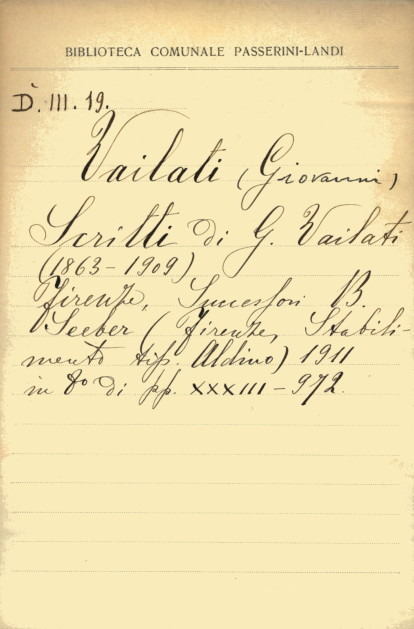 BIBLIOTECA COMUNALE PASSERINI-LANDI
D. III. 19.
Vailati (Giovanni)
Scritti di G. Vailati
(1863-1909)
Firenze, Successori B.
Seeber (Firenze, Stabili-
mento tip. Aldino) 1911
in 8º di pp. XXXIII-972.